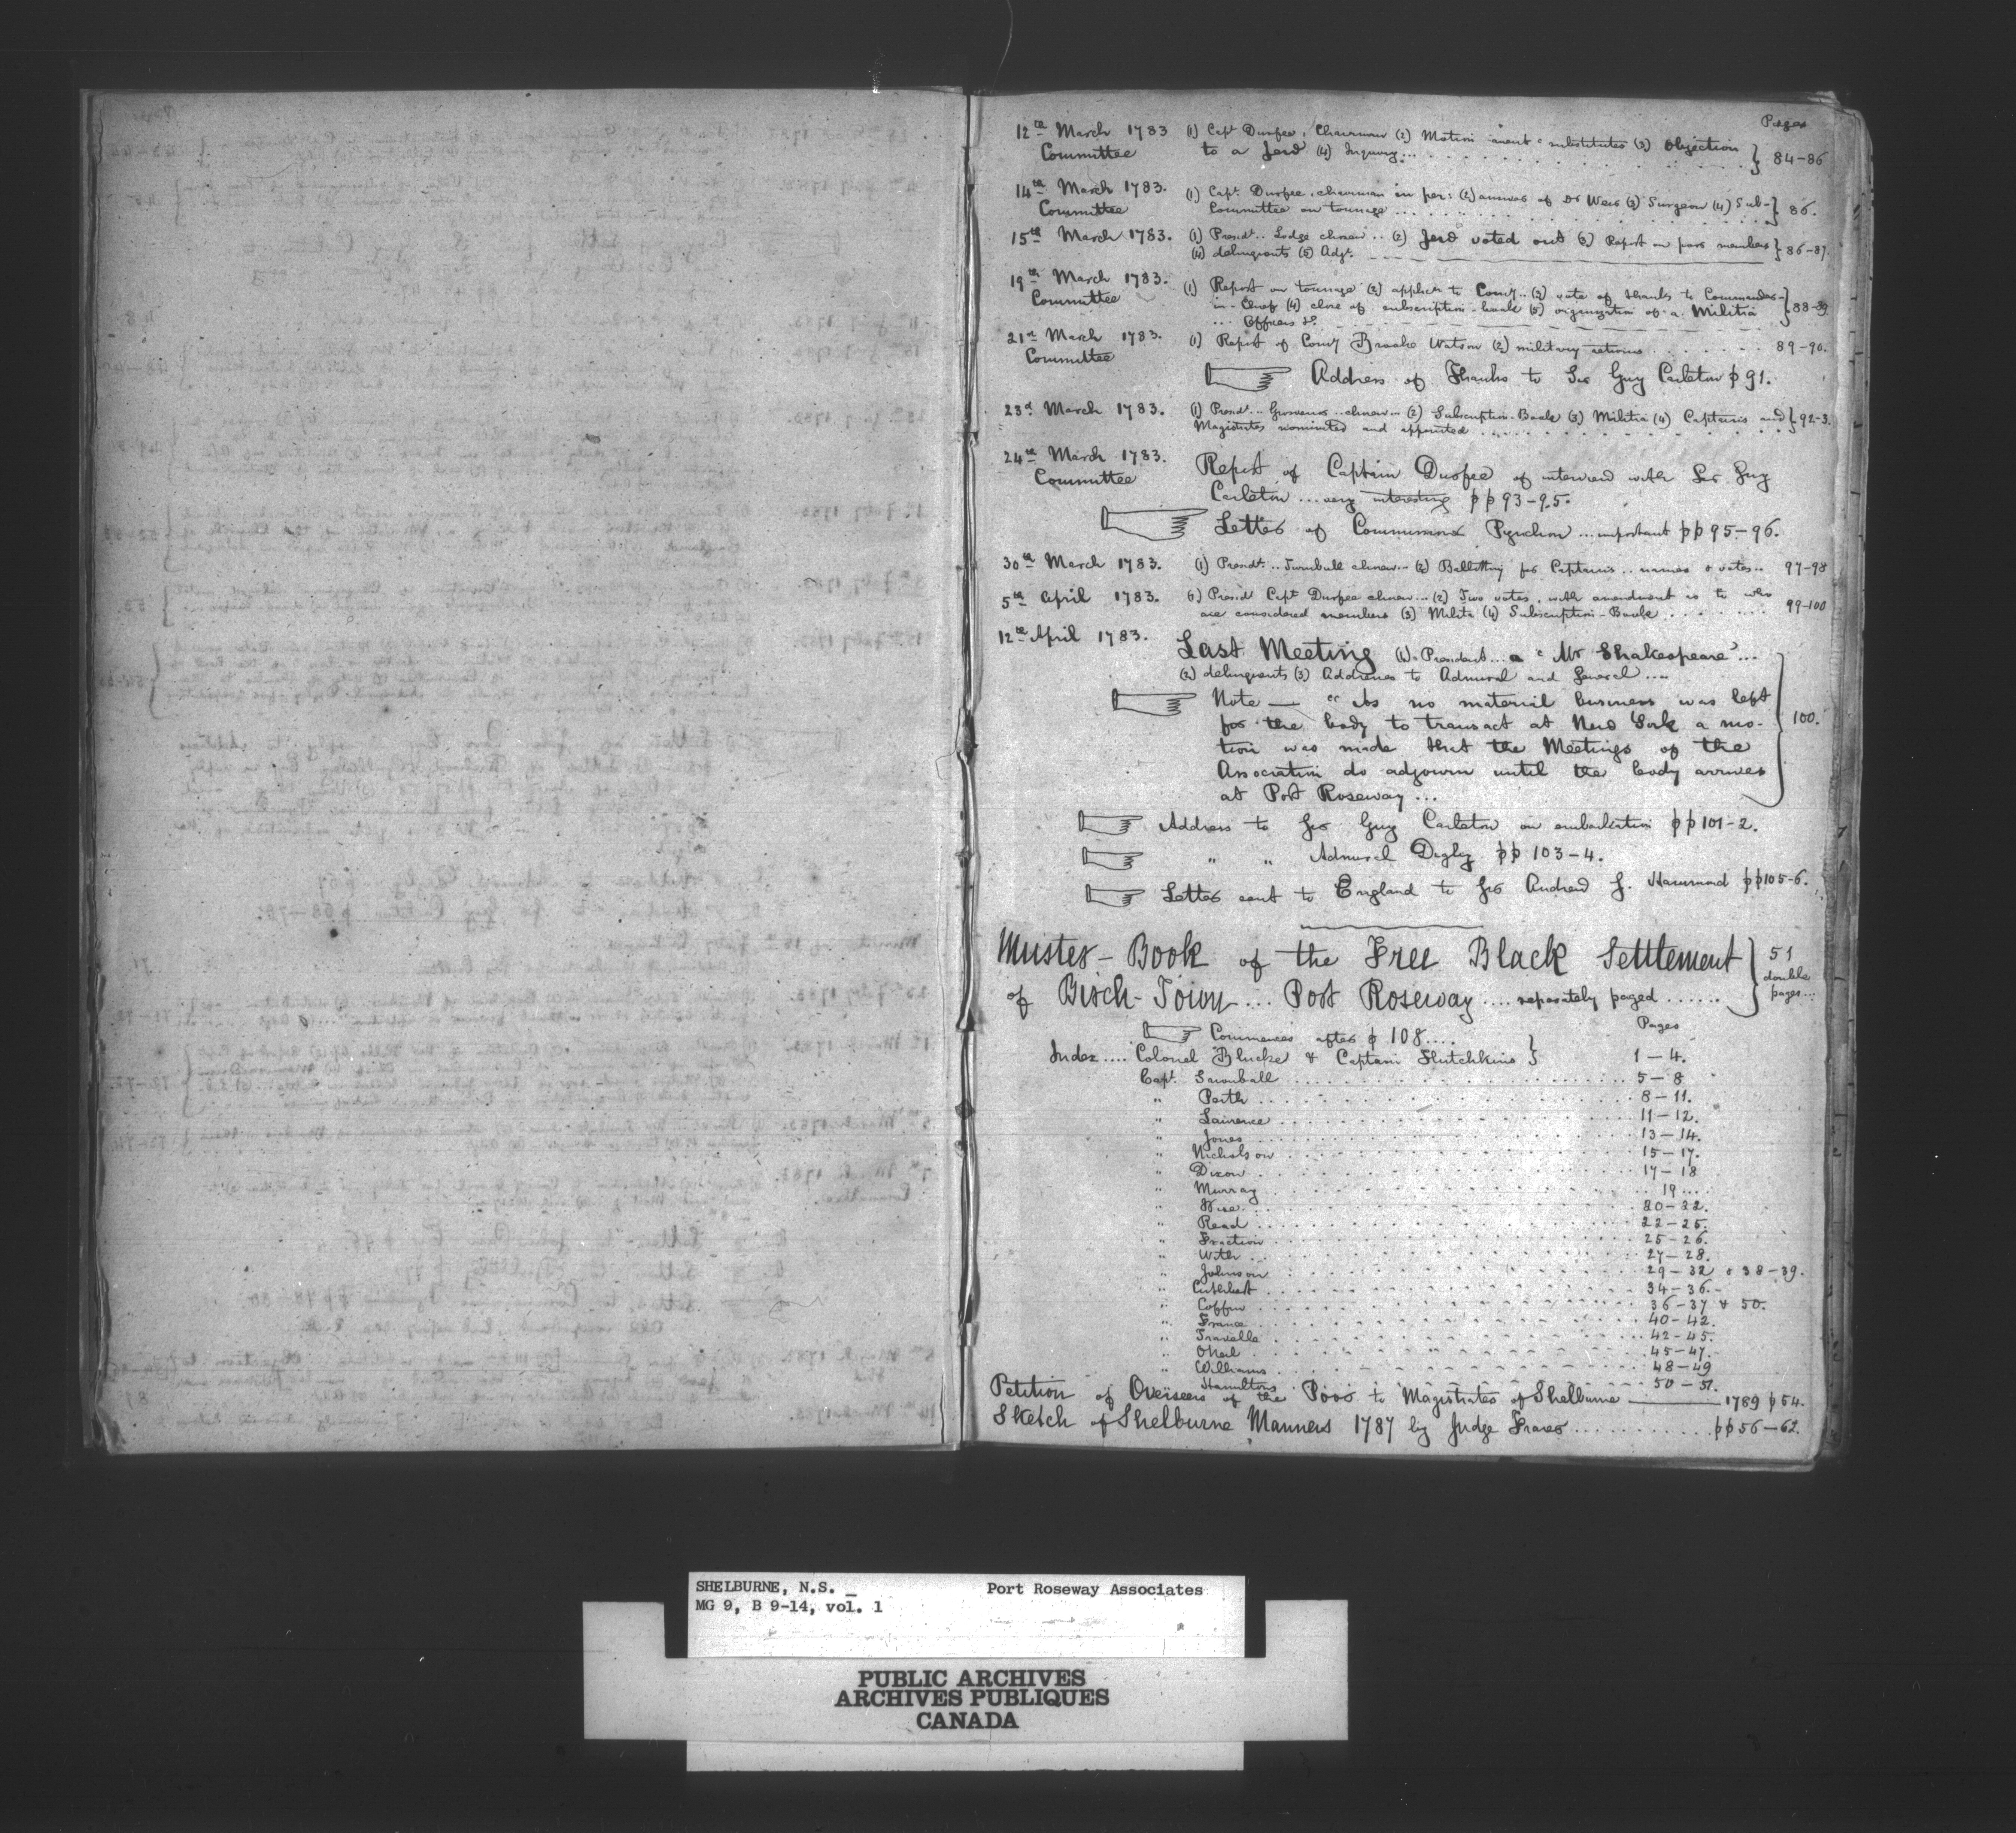 Pages
12th March 1783 (1) Capt Durfee, Chairman (2) Motion anent "substitutes (3) Objection } 84-86
Committee to a Jew (4) Inquiry...
14th March 1783. (1) Capt. Durfee, chairman in per: (2) answer of Dr Weir (3) Surgeon (4) Sub- } 86.
Committee Committee on tonnage...
15th March 1783. (1) Presdt.. Lodge chosen.. (2) Jew voted out (3) Report on poor members } 86-87.
(4) delinquents (5) Adjt.
19th March 1783. (1) Report on tonnage (2) applicn to Comy.. (3) vote of thanks to Commander- } 88-89
Committee in-Chief (4) close of subscription-book (5) organization of a Militia
... Officers &c.
21st March 1783. (1) Report of Comy Brooke Watson (2) military returns ....... 89-90.
Committee
Address of Thanks to Sir Guy Carleton p 91.
23d March 1783. (1) Presdt.. Grosvenor.. chosen... (2) Subscription-Book (3) Militia (4) Captains and } 92-3.
Magistrates nominated and appointed ......
24th March 1783. Report of Captain Durfee of interview with Sir Guy
Committee Carleton ... very interesting pp 93-95.
Letter of Commissioner Pynchon ... important pp 95-96.
30th March 1783. (1) Presdt... Turnbull chosen... (2) Ballotting for Captains.. names & votes.. 97-98
5th April 1783. (1) Presdt Capt Durfee chosen... (2) Two votes, with amendment as to who 99-100
are considered members (3) Militia (4) Subscription-Book ......
12th April 1783. Last Meeting (1).. President... a "Mr Shakespeare"...
(2) delinquents (3) Addresses to Admiral and General ....
Note — "As no material business was left
for the body to transact at New York a mo- } 100.
tion was made that the Meetings of the
Association do adjourn until the body arrives
at Port Roseway...
Address to Sir Guy Carleton on embarkation pp 101-2.
" " Admiral Digby pp 103-4.
Letter sent to England to Sir Andrew S. Hammond pp 105-6.
Muster-Book of the Free Black Settlement } 51
of Birch-Town... Port Roseway .... separately paged ...... double
pages...
Commences after p 108.... Pages
Index .... Colonel Blucke & Captain Hutchkins } 1-4.
Capt. Snowball ...... 5-8
" Perth ...... 8-11.
" Lawrence ...... 11-12.
" Jones ...... 13-14.
" Nicholson ...... 15-17.
" Dixon ...... 17-18
" Murray ...... 19...
" Wise ...... 20-22.
" Read ...... 22-25.
" Fraction ...... 25-26.
" With ...... 27-28.
" Johnson ...... 29-32 & 38-39.
" Cuthbert ...... 34-36.
" Coffin ...... 36-37 & 50.
" France ...... 40-42.
" Travelle ...... 42-45.
" ONeil ...... 45-47.
" Williams ...... 48-49
" Hamilton ...... 50-51.
Petition of Overseers of the Poor to Magistrates of Shelburne — 1789 p 54.
Sketch of Shelburne Manners 1787 by Judge Fraser ........... pp 56-62.
SHELBURNE, N.S. _ Port Roseway Associates
MG 9, B 9-14, vol. 1
PUBLIC ARCHIVES
ARCHIVES PUBLIQUES
CANADA